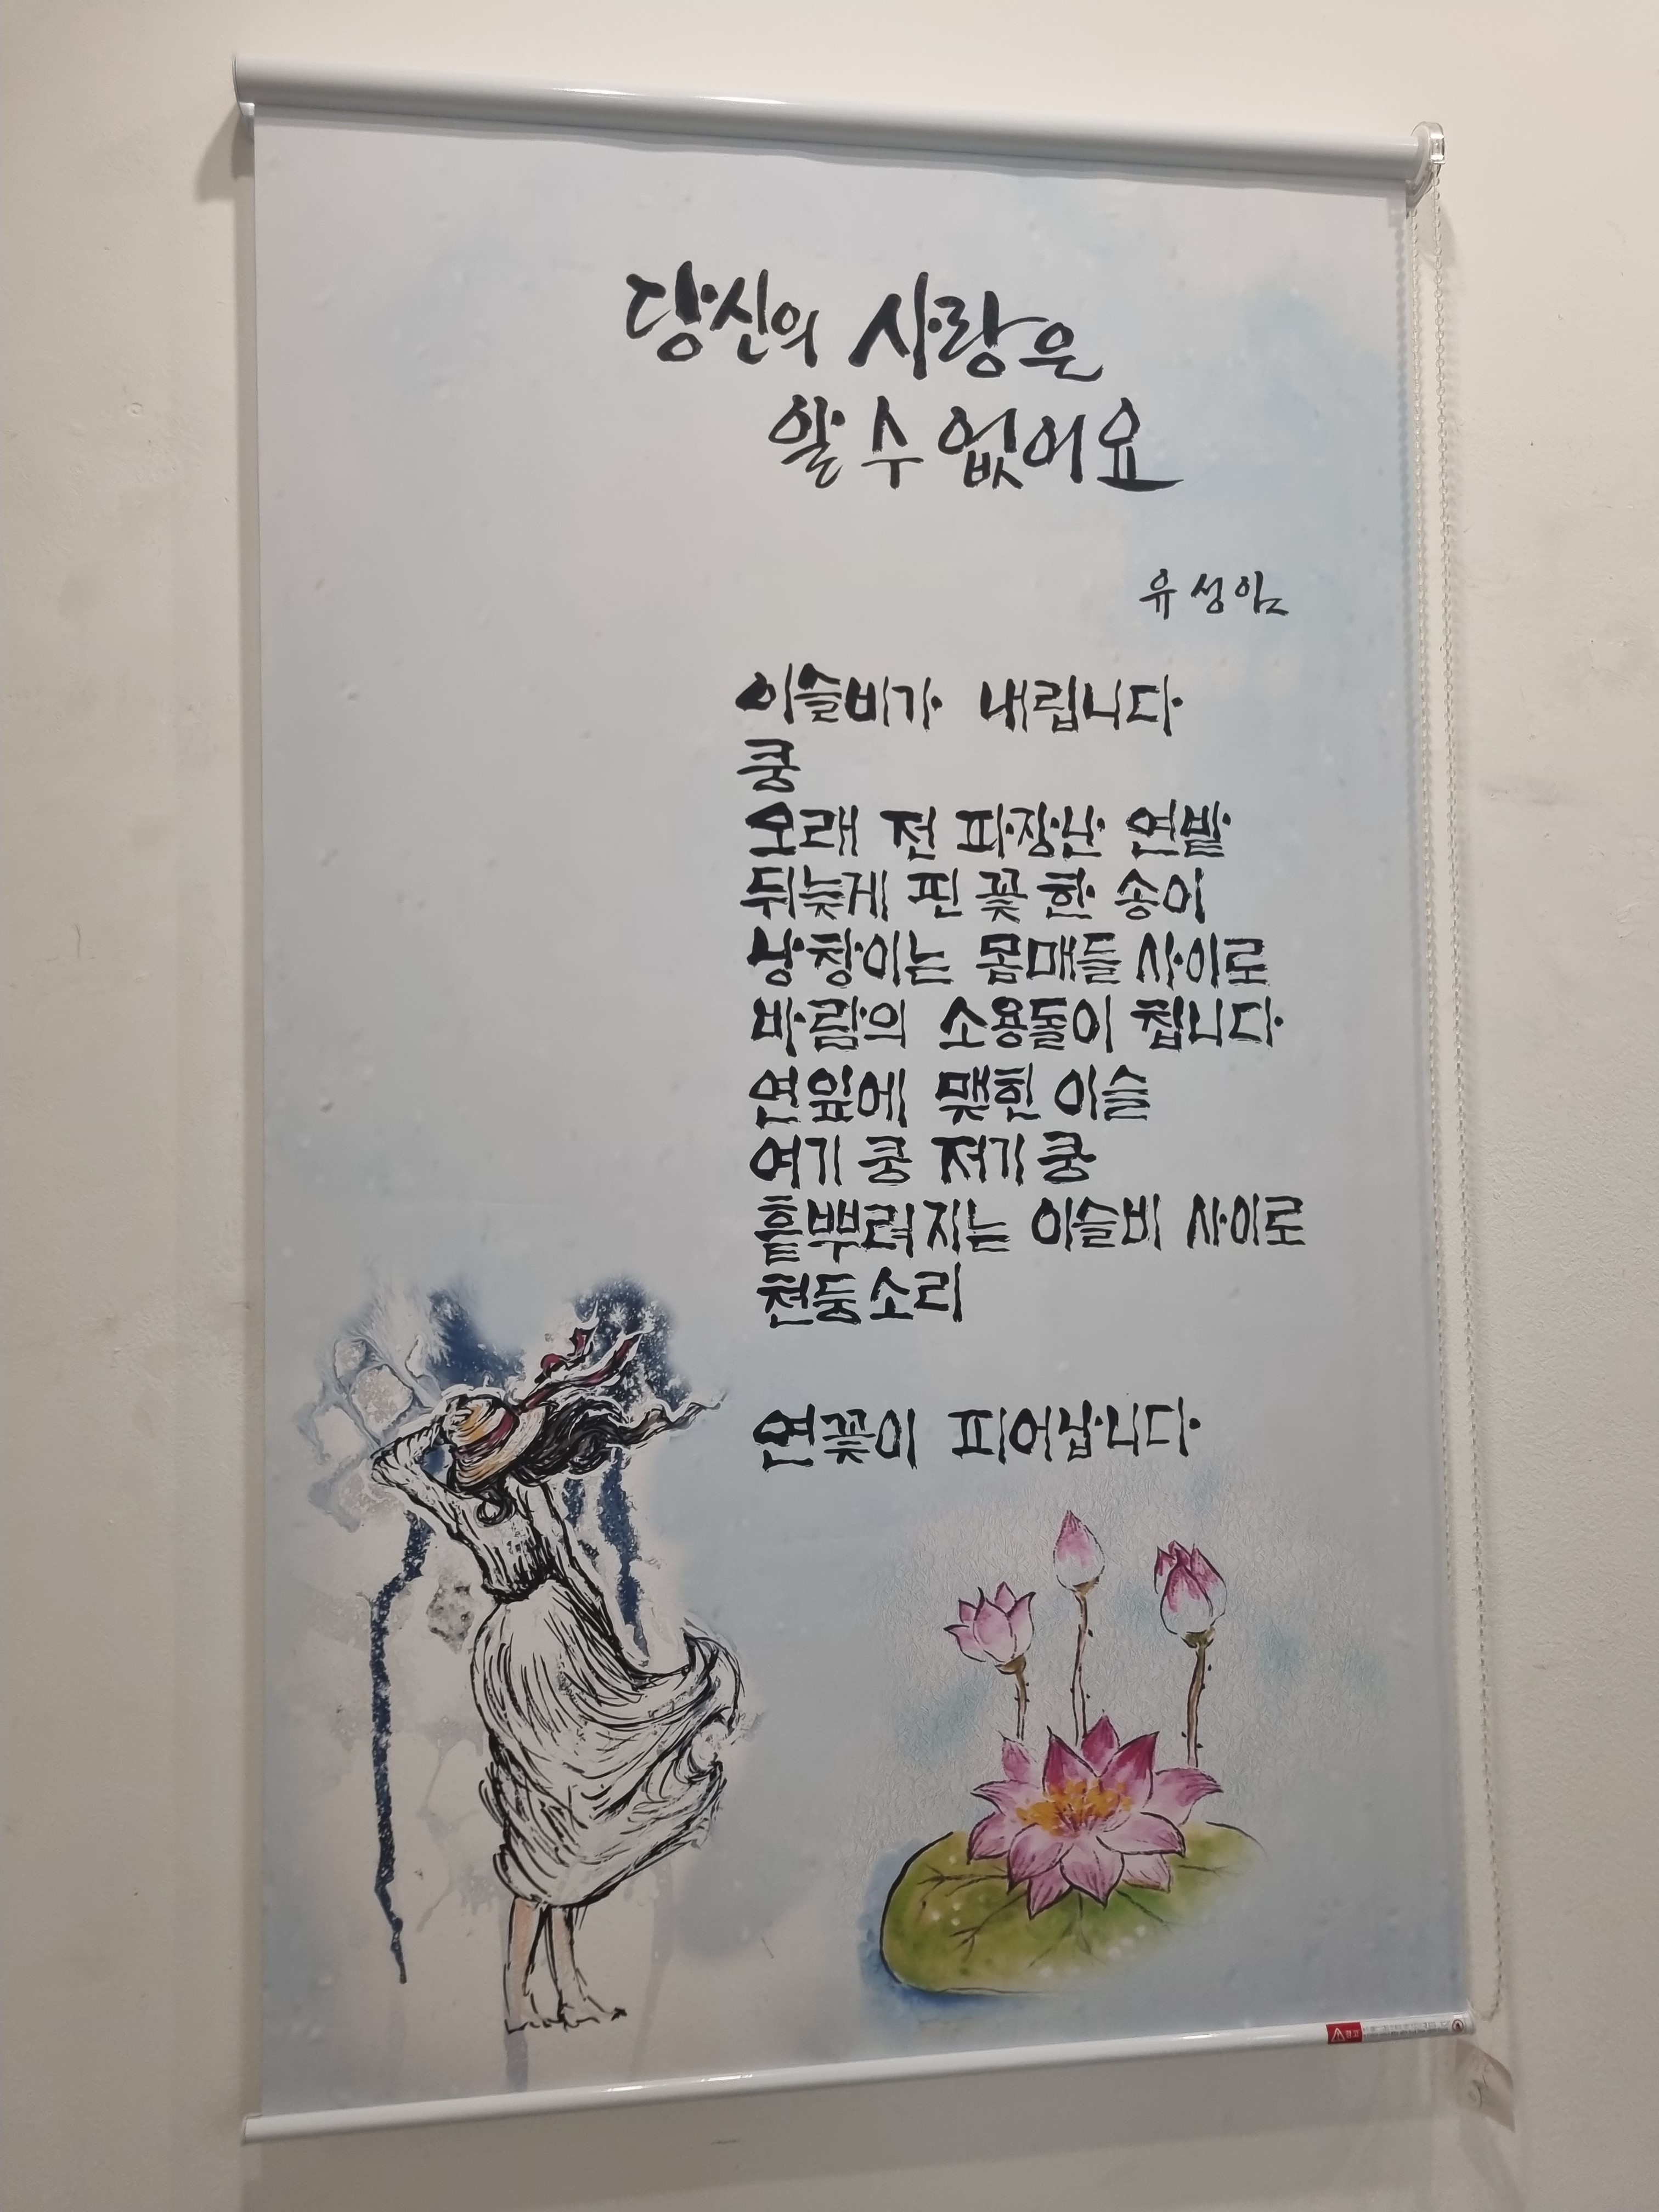 당신의 사랑은
알 수 없어요
유성임
이슬비가 내립니다
쿵
오래 전 파장난 연밭
뒤늦게 핀 꽃 한 송이
낭창이는 몸매들 사이로
바람의 소용돌이 칩니다
연잎에 맺힌 이슬
여기 쿵 저기 쿵
흩뿌려지는 이슬비 사이로
천둥소리
연꽃이 피어납니다